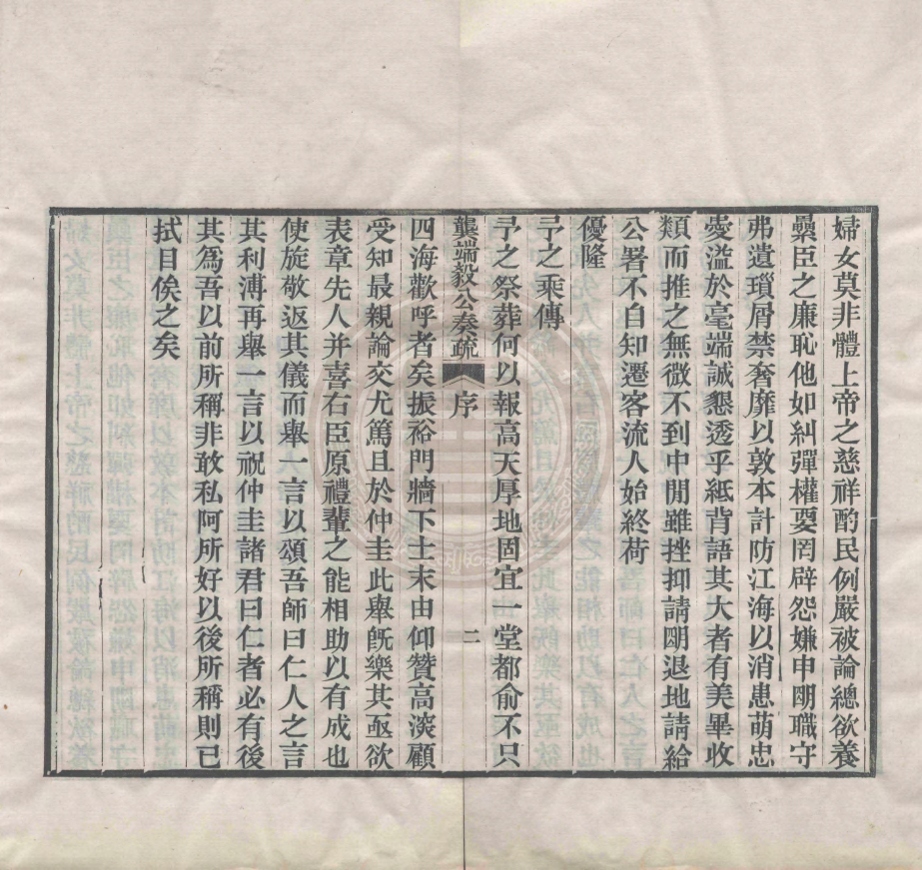 婦女莫非體上帝之慈祥酌民例嚴被論總欲養
纍臣之廉恥他如糾彈權要罔辟怨嫌申朙職守
弗遺瑣屑禁奢靡以敦本計防江海以消患萌忠
愛溢於毫端誠懇透乎紙背語其大者有美畢收
類而推之無微不到中閒雖挫抑請朙退地請給
公署不自知遷客流人始終荷
優隆
予之乘傳
予之祭葬何以報高天厚地固宜一堂都俞不只
龔端毅公奏疏 序 二
四海歡呼者矣振裕門牆下士末由仰贊高深顧
受知最親論交尤篤且於仲圭此舉旣樂其亟欲
表章先人并喜右臣原禮輩之能相助以有成也
使旋敬返其儀而舉一言以頌吾師曰仁人之言
其利溥再舉一言以祝仲圭諸君曰仁者必有後
其爲吾以前所稱非敢私阿所好以後所稱則已
拭目俟之矣